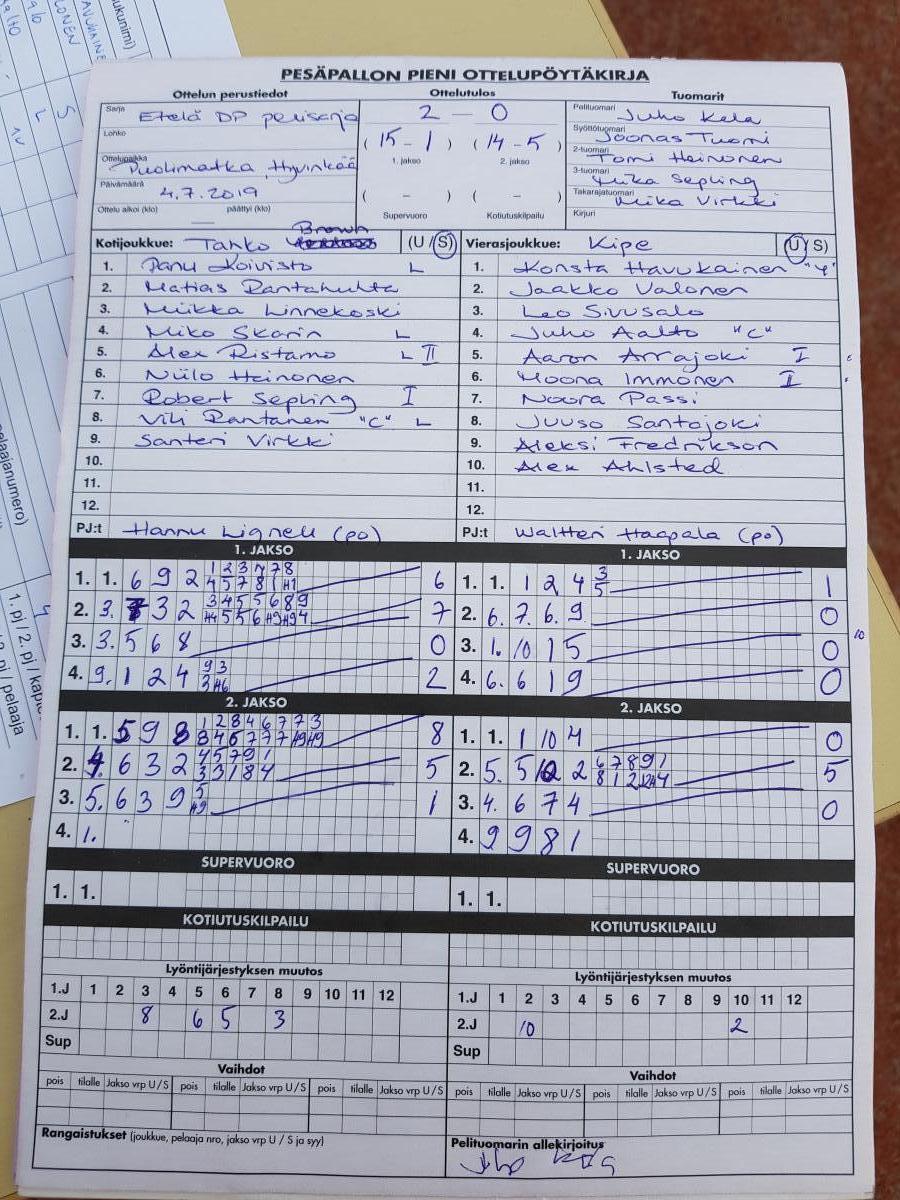 PESÄPALLON PIENI OTTELUPÖYTÄKIRJA
Ottelun perustiedot Ottelutulos Tuomarit
Sarja Etelä DP perussarja
Lohko
Ottelupaikka Puolimatka, Hyvinkää
Päivämäärä 4.7.2019
Ottelu alkoi (klo) — päättyi (klo)
2 – 0
(15 – 1) (14 – 5)
1. jakso 2. jakso
( – ) ( – )
Supervuoro Kotiutuskilpailu
Pelituomari Juho Kela
Syöttötuomari Joonas Tuomi
2-tuomari Tomi Heinonen
3-tuomari Mika Sepling
Takarajatuomari Mika Virkki
Kirjuri
Kotijoukkue: Tahko Brown (U/S)
1. Panu Koivisto L
2. Matias Rantahuhta
3. Miikka Linnekoski
4. Miko Skarin L
5. Alex Ristamo L II
6. Niilo Heinonen
7. Robert Sepling I
8. Vili Rantanen "C" L
9. Santeri Virkki
10.
11.
12.
PJ:t Hannu Lignell (po)
Vierasjoukkue: Kipe (U/S)
1. Konsta Havukainen
2. Jaakko Valonen
3. Leo Sivusalo
4. Juho Aalto "C"
5. Aaron Arrajoki I
6. Moona Immonen I
7. Noora Passi
8. Juuso Santojoki
9. Aleksi Fredrikson
10. Alex Ahlsted
11.
12.
PJ:t Waltteri Haapala (po)
1. JAKSO
1. 1. 6 9 2 6
2. 3. 3 2 7
3. 3. 5 6 8 0
4. 9. 1 2 4 2
2. JAKSO
1. 1. 5 9 8 8
2. 4. 6 3 2 5
3. 5. 6 3 9 1
4. 1.
SUPERVUORO
1. 1.
KOTIUTUSKILPAILU
1. JAKSO
1. 1. 1 2 4 3 5 1
2. 6. 7. 6. 9. 0
3. 1. 10 1 5 0
4. 6. 6 1 9 0
2. JAKSO
1. 1. 1 10 4 0
2. 5. 5 2 5
3. 4. 6 7 4 0
4. 9 9 8 1
SUPERVUORO
1. 1.
KOTIUTUSKILPAILU
Lyöntijärjestyksen muutos
1.J 1 2 3 4 5 6 7 8 9 10 11 12
2.J 8 6 5 3
Sup
Vaihdot
pois tilalle Jakso vrp U/S pois tilalle Jakso vrp U/S pois tilalle Jakso vrp U/S
Rangaistukset (joukkue, pelaaja nro, jakso vrp U / S ja syy)
Lyöntijärjestyksen muutos
1.J 1 2 3 4 5 6 7 8 9 10 11 12
2.J 10 2
Sup
Vaihdot
pois tilalle Jakso vrp U/S pois tilalle Jakso vrp U/S pois tilalle Jakso vrp U/S
Pelituomarin allekirjoitus